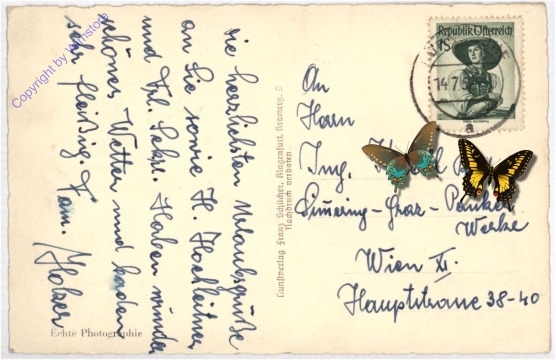 die herzlichsten Urlaubsgrüße
an Sie sowie H. Hochleitner
und Frl. Sekr. Haben wunder
schönes Wetter und baden
sehr fleißig. Fam. Holzer
Echte Photographie
Kunstverlag Franz Schilcher, Klagenfurt, Kramerg. 9
Nachdruck verboten
Republik Österreich
1S
14.7.5
a
An
Herrn
Ing.
Simering-Graz-Pauker
Werke
Wien XI.
Hauptstrasse 38-40
Copyright by